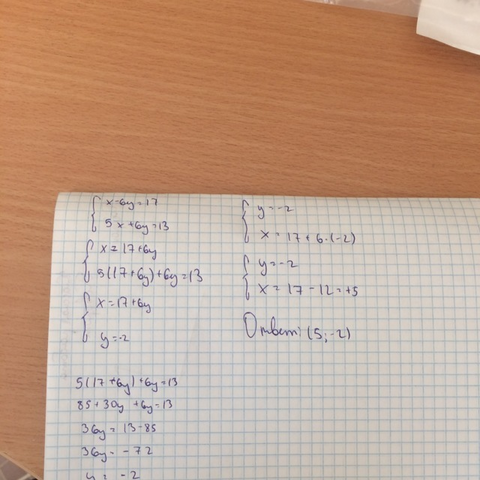 x-6y=17
5x+6y=13
x=17+6y
5(17+6y)+6y=13
x=17+6y
y=-2
5(17+6y)+6y=13
85+30y+6y=13
36y=13-85
36y=-72
y=-2
y=-2
x=17+6·(-2)
y=-2
x=17-12=+5
Ответ: (5;-2)